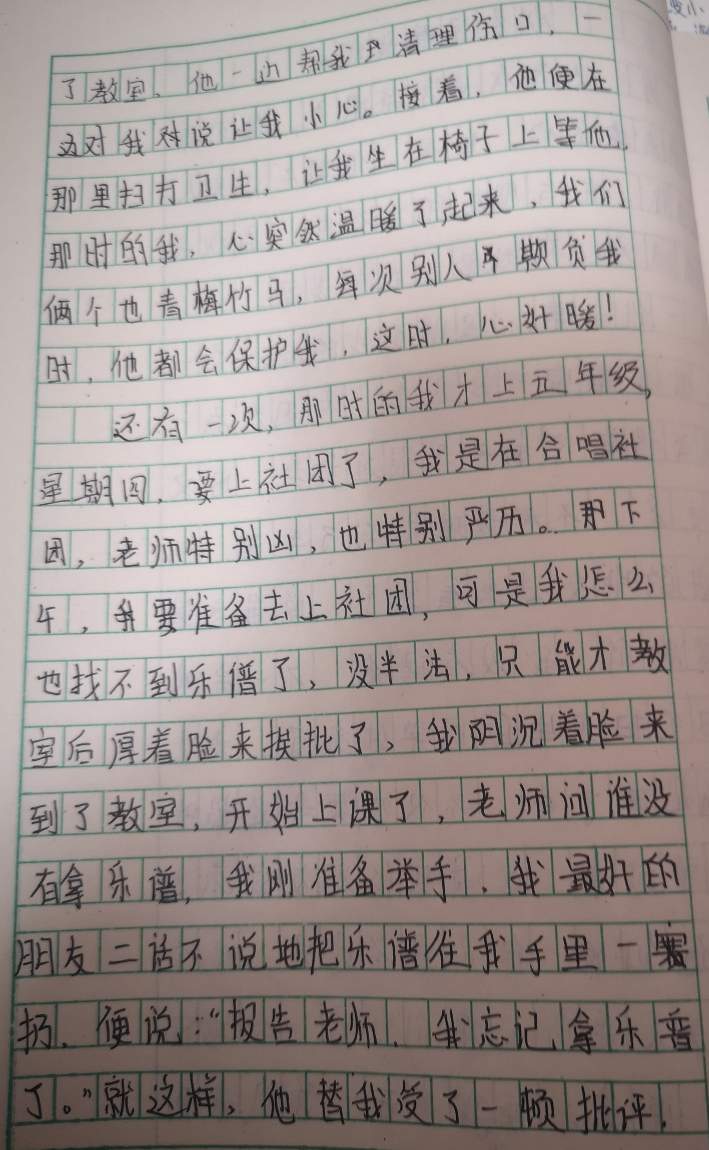 了教室、他一边帮我清理伤口,一
边对我说让我小心。接着,他便在
那里扫打卫生,让我坐在椅子上等他,
那时的我,心突然温暖了起来,我们
俩个也青梅竹马,每次别人欺负我
时,他都会保护我,这时,心好暖!
还有一次,那时的我才上五年级,
星期四,要上社团了,我是在合唱社
团,老师特别凶,也特别严历。那下
午,我要准备去上社团,可是我怎么
也找不到乐谱了,没半法,只能才教
室后厚着脸来挨批了,我阴沉着脸来
到了教室,开始上课了,老师问谁没
有拿乐谱,我刚准备举手,我最好的
朋友二话不说地把乐谱往我手里一塞
扔,便说:“报告老师,我忘记拿乐普
了。”就这样,他替我受了一顿批评,